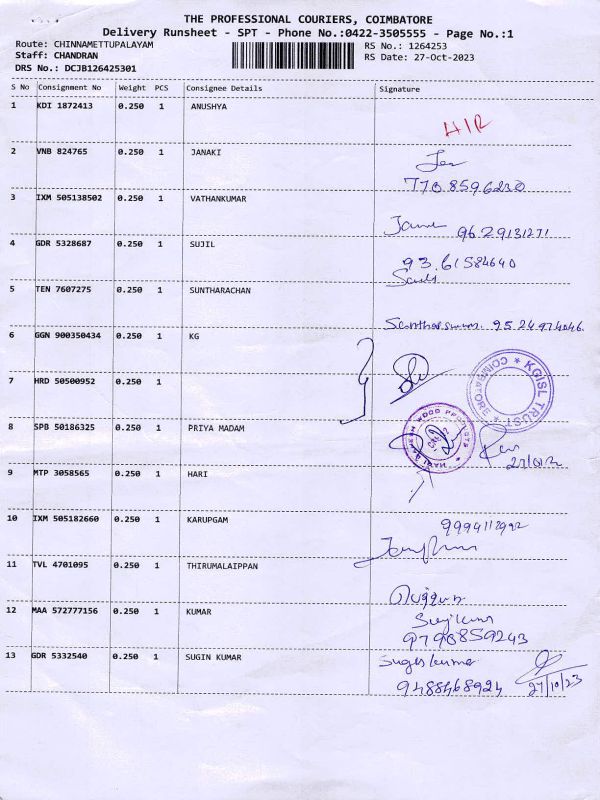 THE PROFESSIONAL COURIERS, COIMBATORE
Delivery Runsheet - SPT - Phone No.:0422-3505555 - Page No.:1
Route: CHINNAMETTUPALAYAM RS No.: 1264253
Staff: CHANDRAN RS Date: 27-Oct-2023
DRS No.: DCJB126425301
S No Consignment No Weight PCS Consignee Details Signature
1 KDI 1872413 0.250 1 ANUSHYA
2 VNB 824765 0.250 1 JANAKI
7708596230
3 IXM 505138502 0.250 1 VATHANKUMAR
9629131271
4 GDR 5328687 0.250 1 SUJIL
93.61584640
5 TEN 7607275 0.250 1 SUNTHARACHAN
6 GGN 900350434 0.250 1 KG
KGISL TRUST * COIMBATORE *
7 HRD 50500952 0.250 1
8 SPB 50186325 0.250 1 PRIYA MADAM
9 MTP 3058565 0.250 1 HARI
10 IXM 505182660 0.250 1 KARUPGAM
11 TVL 4701095 0.250 1 THIRUMALAIPPAN
12 MAA 572777156 0.250 1 KUMAR
9798859243
13 GDR 5332540 0.250 1 SUGIN KUMAR
9488468924 27/10/23